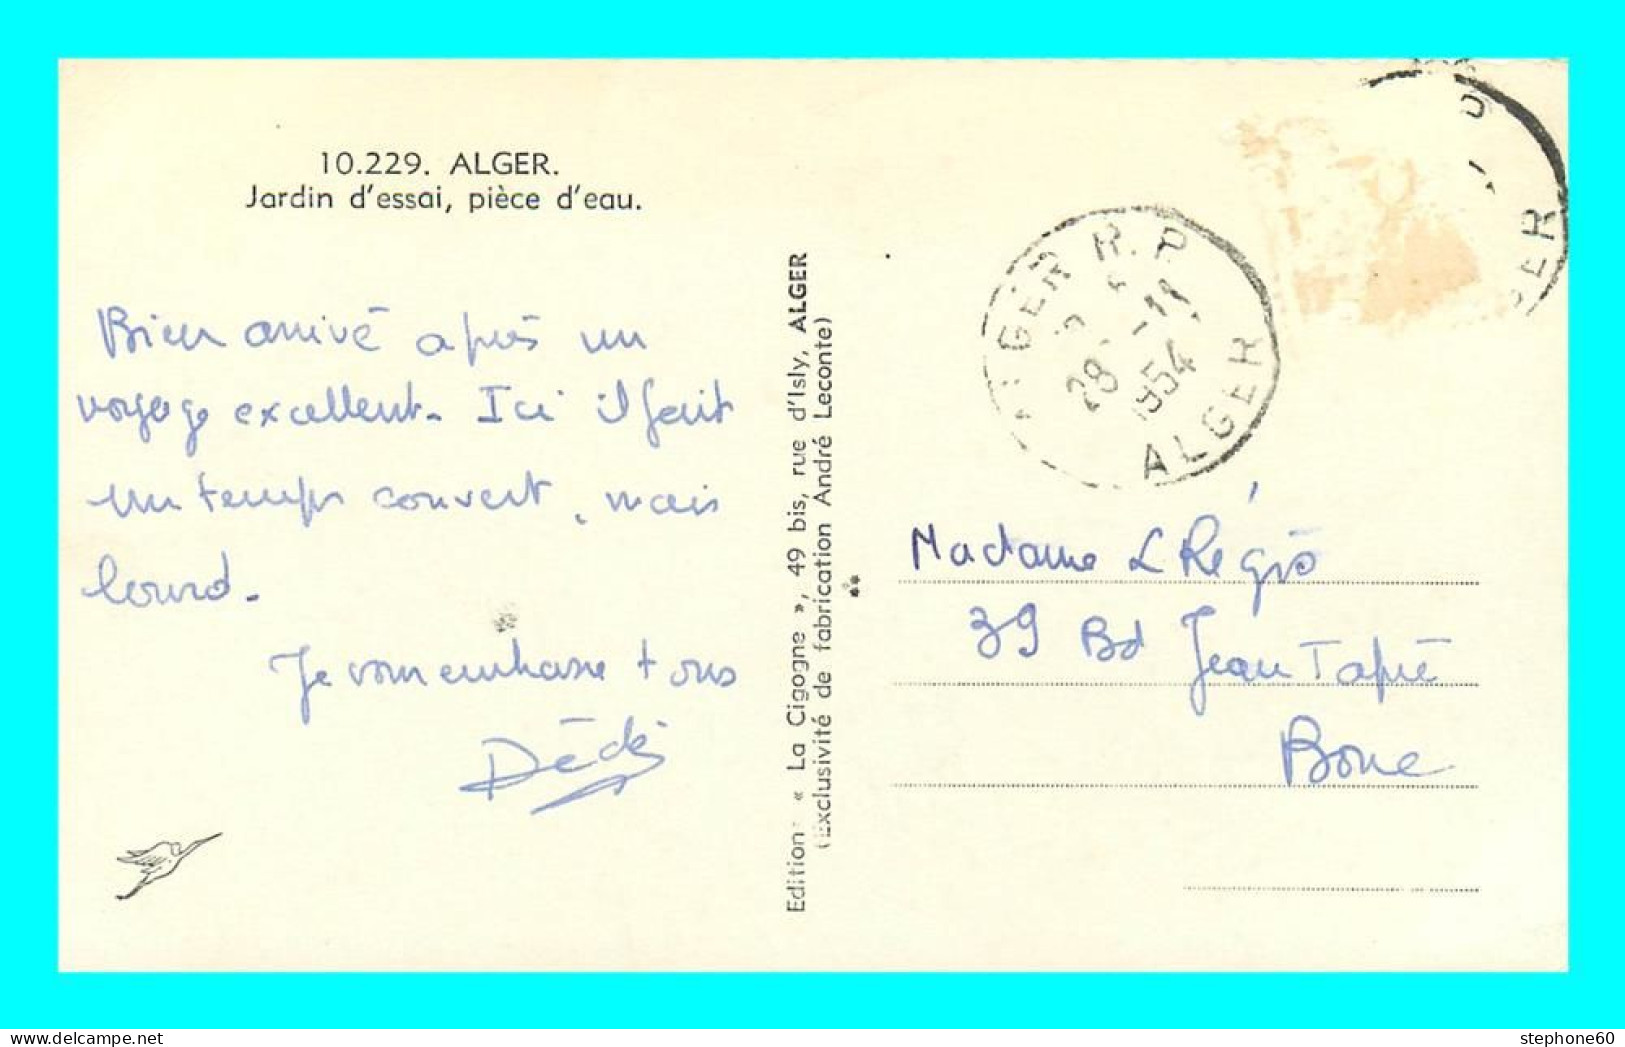 10.229. ALGER.
Jardin d'essai, pièce d'eau.
Bien arrivé après un
voyage excellent. Ici il fait
un temps couvert, mais
lourd.
Je vous embrasse tous
Dédé
Edition « La Cigogne », 49 bis, rue d'Isly, ALGER
(Exclusivité de fabrication André Leconte)
ALGER R.P.
28 - 11
1954
ALGER
Madame L Régis
39 Bd Jean Tapié
Bone
stephone60